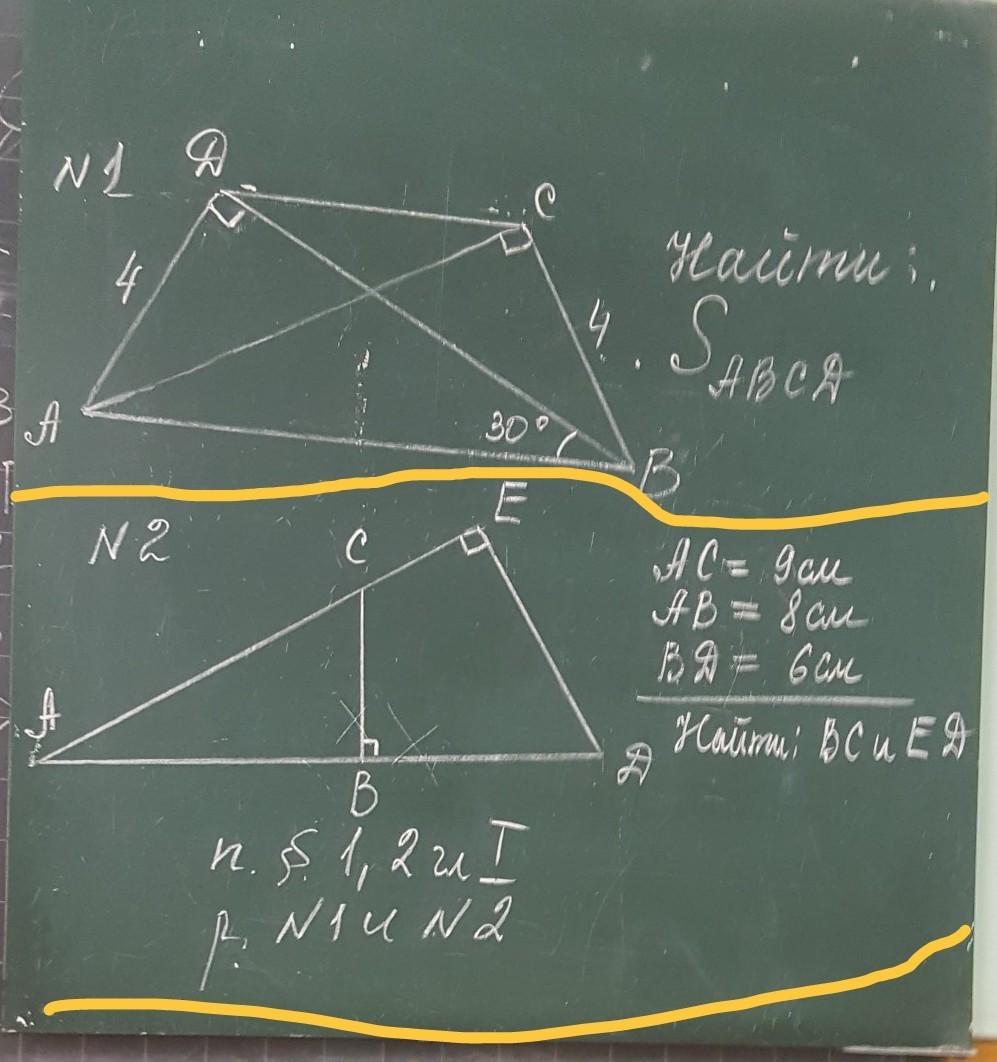 N1
D
C
4
4
A
30°
B
Найти:
S ABCD
N2
E
C
A
B
D
AC = 9см
AB = 8см
BD = 6см
Найти: BC и ED
п. § 1, 2 гл I
р. N1 и N2